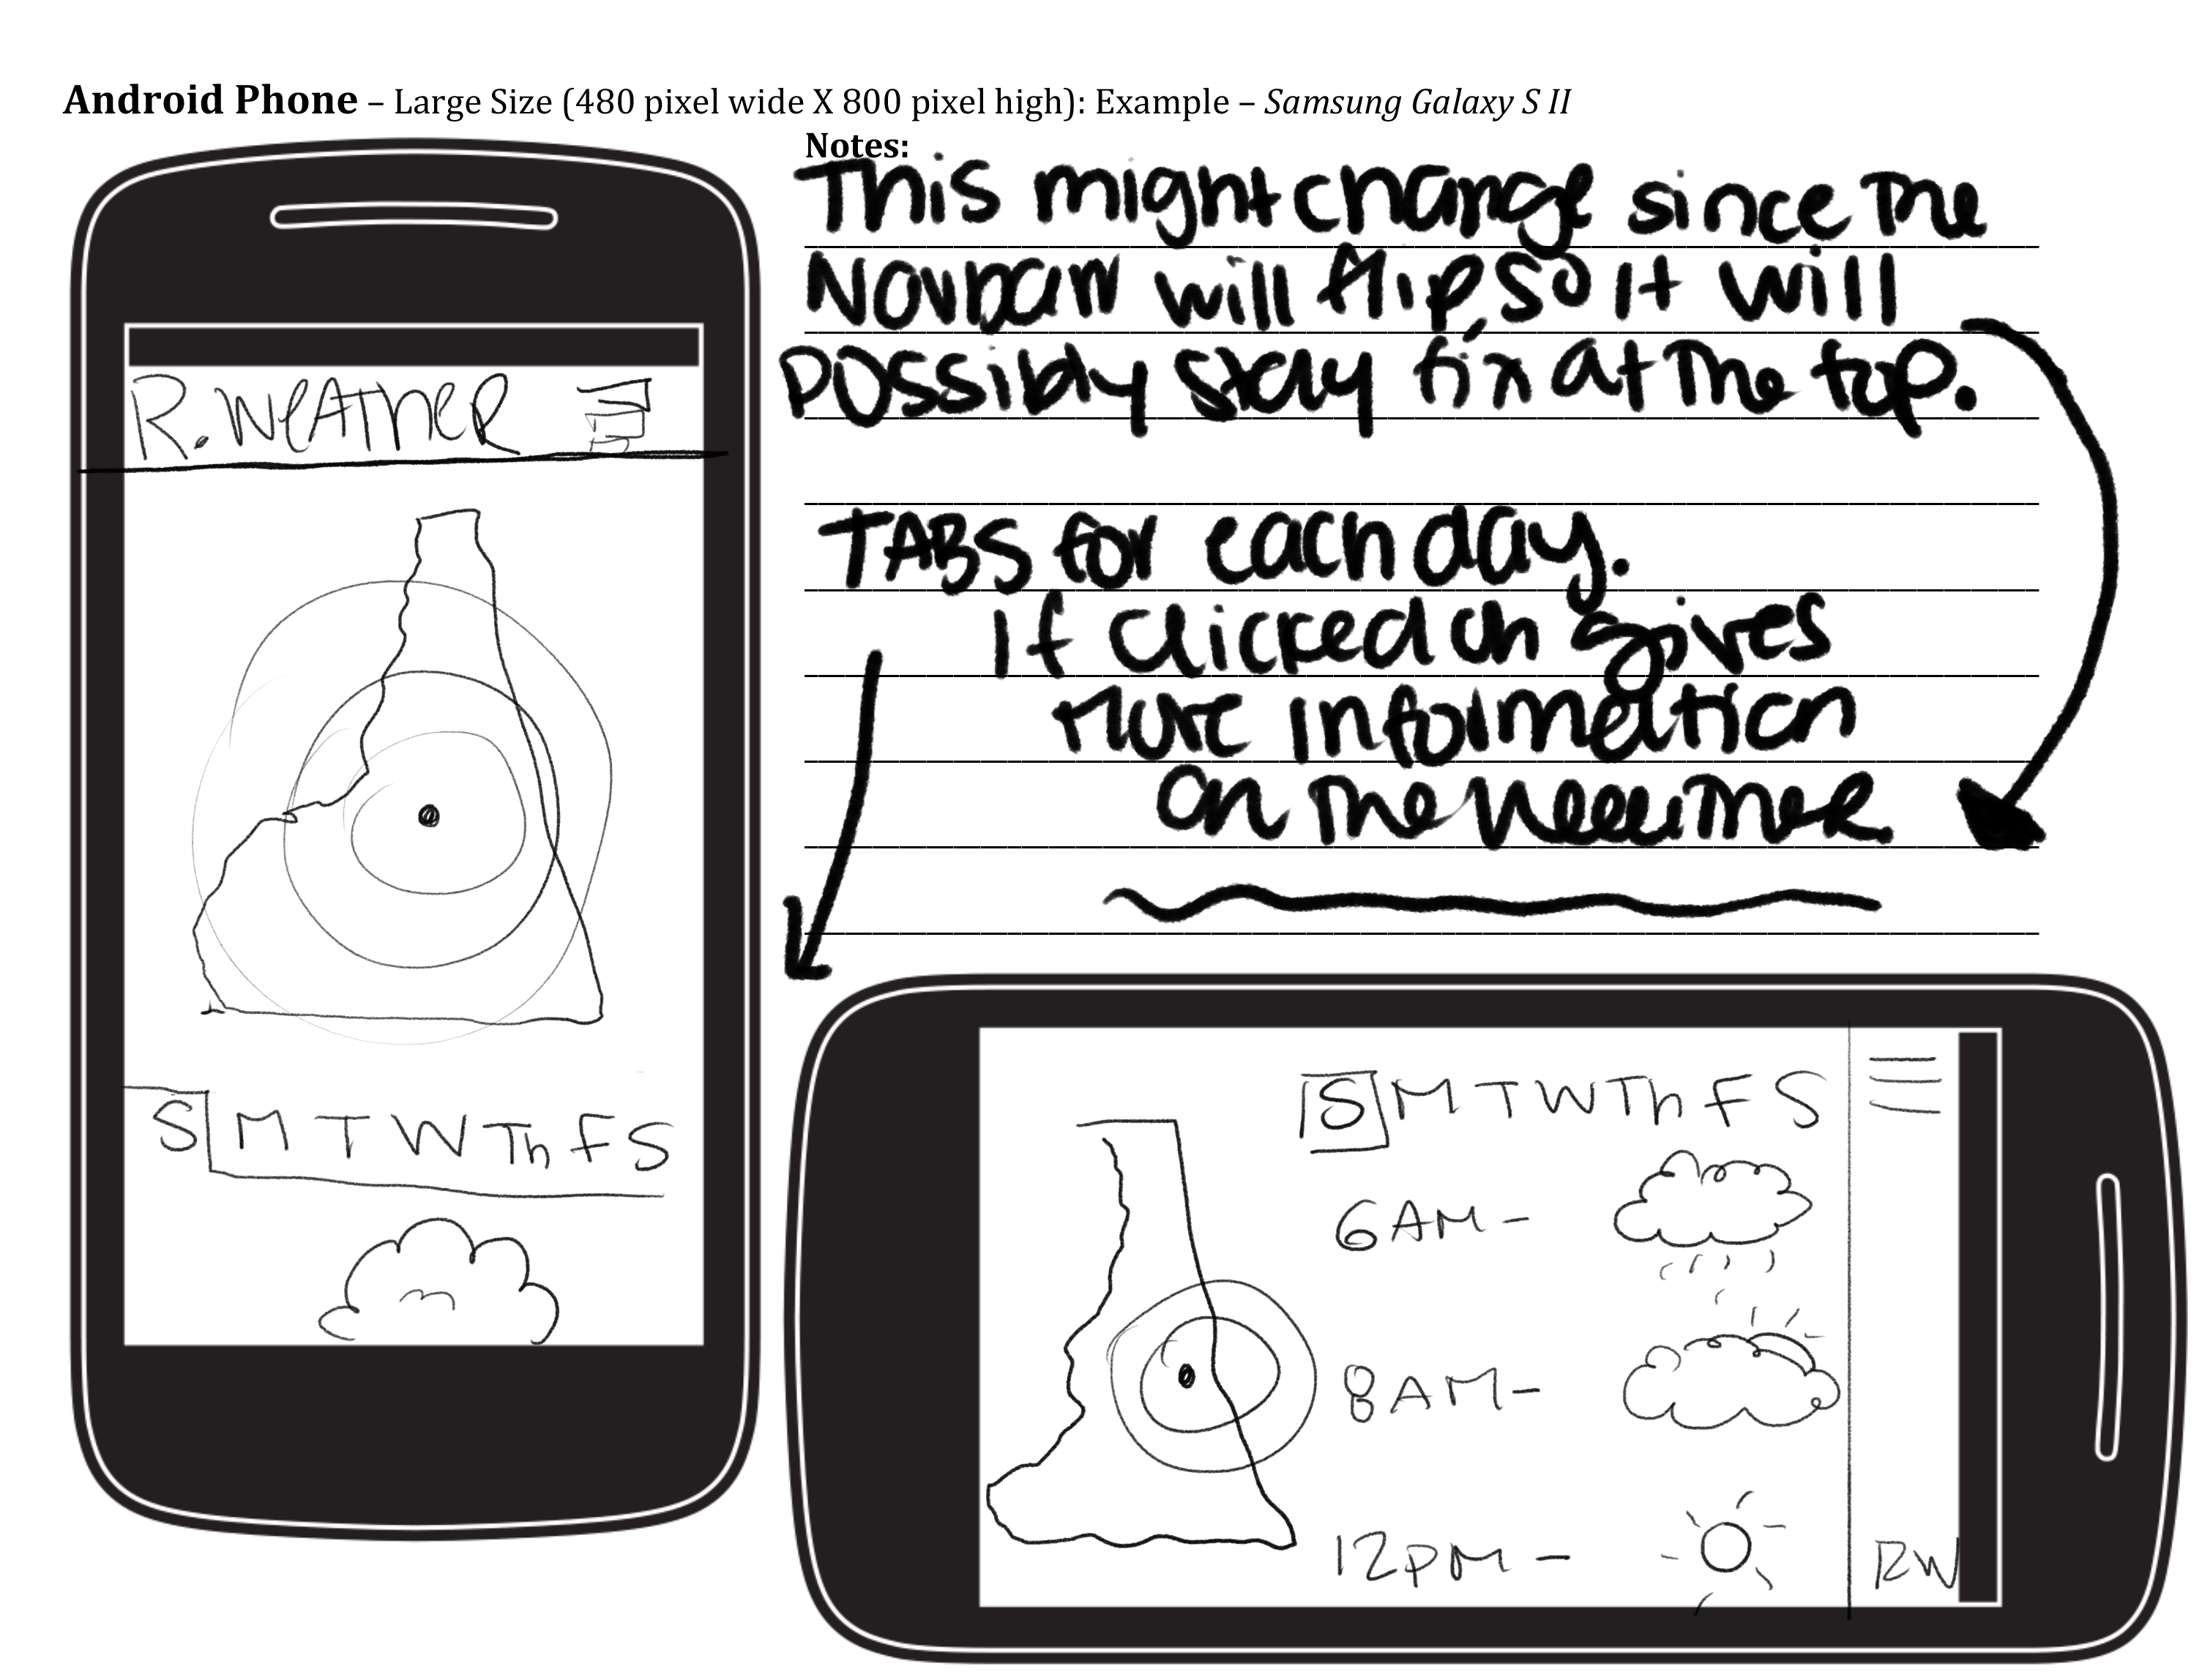 Android Phone – Large Size (480 pixel wide X 800 pixel high): Example – Samsung Galaxy S II
Notes:
This might change since the
Navbar will flip so it will
possibly stay fix at the top.
TABS for each day.
If clicked on gives
more information
on the weather
R. WEATHER
S M T W Th F S
S M T W Th F S
6AM-
8AM-
12PM -
RW